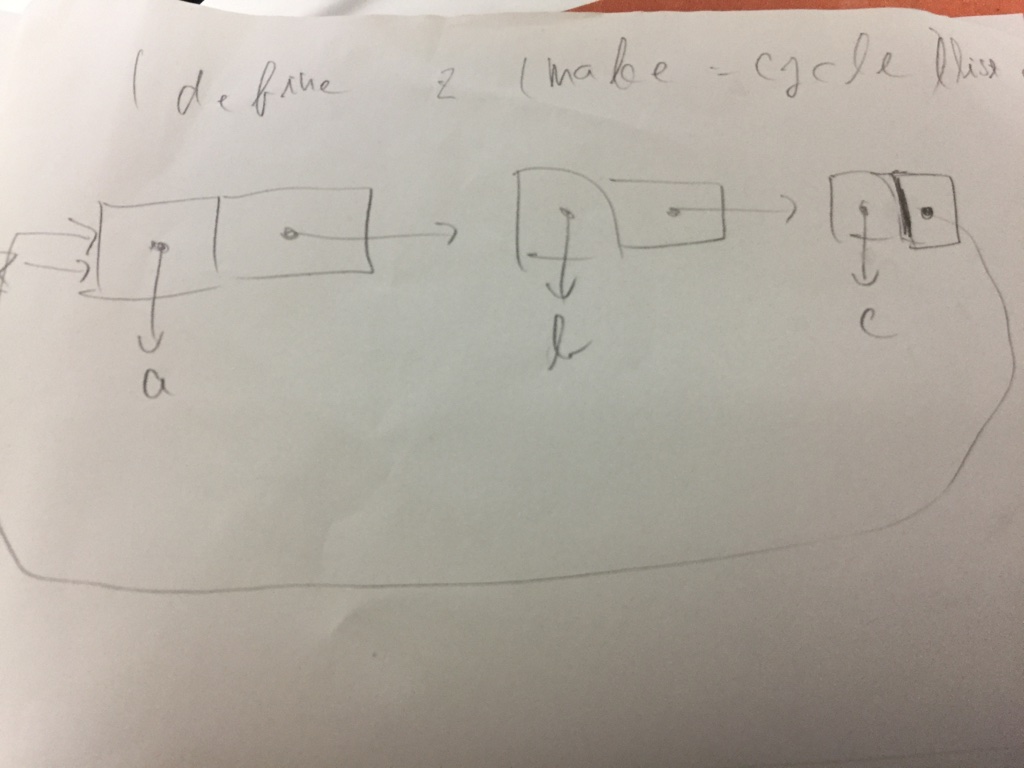 (define z (make-cycle (list
a
b
c